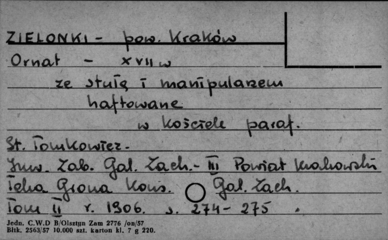 ZIELONKI - pow. Kraków
Ornat - XVII w
ze stułą i manipularzem
haftowane
w kościele paraf.
St. Tomkowicz.
Inw. Zab. Gal. Zach. - III Powiat Krakowski
Teka Grona Kons. Gal. Zach.
Tom II r. 1906. s. 274 - 275.
Jedn. C.W.D B/Olsztyn Zam 2776 /on/57
Błtk. 2563/57 10.000 szt. karton kl. 7 g 220.